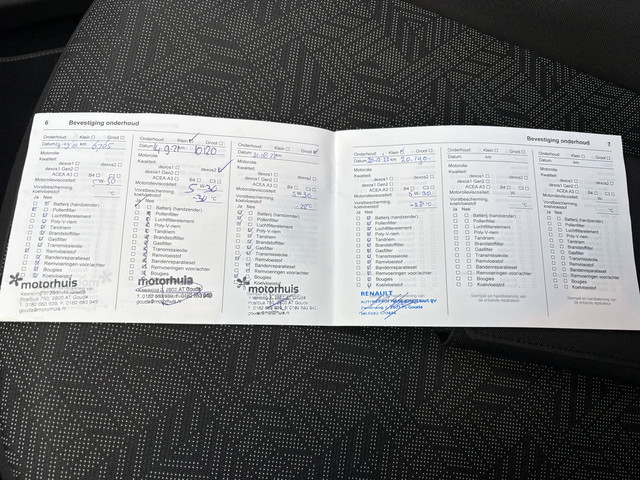 6 Bevestiging onderhoud
Onderhoud: Klein Groot
Datum 6705 km
Motorolie
Kwaliteit: dexos1 dexos2
dexos1 Gen2
ACEA A3 B4 C3
Motorolieviscositeit W
Vorstbescherming, koelvloeistof °C
Ja Nee
Batterij (handzender)
Pollenfilter
Luchtfilterelement
Poly-V-riem
Tandriem
Brandstoffilter
Gasfilter
Transmissieolie
Remvloeistof
Bandenreparatieset
Remvoeringen voor/achter
Bougies
Koelvloeistof
motorhuis
Postbus 753, 2800 AT Gouda
Onderhoud: Klein Groot
Datum 14.9.21 km 16120
Motorolie
Kwaliteit: dexos1 dexos2
dexos1 Gen2
ACEA A3 B4 C3
Motorolieviscositeit 5 W 30
Vorstbescherming, koelvloeistof -30 °C
Ja Nee
Batterij (handzender)
Pollenfilter
Luchtfilterelement
Poly-V-riem
Tandriem
Brandstoffilter
Gasfilter
Transmissieolie
Remvloeistof
Bandenreparatieset
Remvoeringen voor/achter
Bougies
Koelvloeistof
motorhuis
Onderhoud: Klein Groot
Datum km
Motorolie
Kwaliteit: dexos1 dexos2
dexos1 Gen2
ACEA A3 B4 C3
Motorolieviscositeit W
Vorstbescherming, koelvloeistof °C
Ja Nee
Batterij (handzender)
Pollenfilter
Luchtfilterelement
Poly-V-riem
Tandriem
Brandstoffilter
Gasfilter
Transmissieolie
Remvloeistof
Bandenreparatieset
Remvoeringen voor/achter
Bougies
Koelvloeistof
motorhuis
Bevestiging onderhoud 7
Onderhoud: Klein Groot
Datum km 20.190
Motorolie
Kwaliteit: dexos1 dexos2
dexos1 Gen2
ACEA A3 B4 C3
Motorolieviscositeit W
Vorstbescherming, koelvloeistof °C
Ja Nee
Batterij (handzender)
Pollenfilter
Luchtfilterelement
Poly-V-riem
Tandriem
Brandstoffilter
Gasfilter
Transmissieolie
Remvloeistof
Bandenreparatieset
Remvoeringen voor/achter
Bougies
Koelvloeistof
RENAULT
Onderhoud: Klein Groot
Datum km
Motorolie
Kwaliteit: dexos1 dexos2
dexos1 Gen2
ACEA A3 B4 C3
Motorolieviscositeit W
Vorstbescherming, koelvloeistof °C
Ja Nee
Batterij (handzender)
Pollenfilter
Luchtfilterelement
Poly-V-riem
Tandriem
Brandstoffilter
Gasfilter
Transmissieolie
Remvloeistof
Bandenreparatieset
Remvoeringen voor/achter
Bougies
Koelvloeistof
Stempel en handtekening van de erkende reparateur
Onderhoud: Klein Groot
Datum km
Motorolie
Kwaliteit: dexos1 dexos2
dexos1 Gen2
ACEA A3 B4 C3
Motorolieviscositeit W
Vorstbescherming, koelvloeistof °C
Ja Nee
Batterij (handzender)
Pollenfilter
Luchtfilterelement
Poly-V-riem
Tandriem
Brandstoffilter
Gasfilter
Transmissieolie
Remvloeistof
Bandenreparatieset
Remvoeringen voor/achter
Bougies
Koelvloeistof
Stempel en handtekening van de erkende reparateur